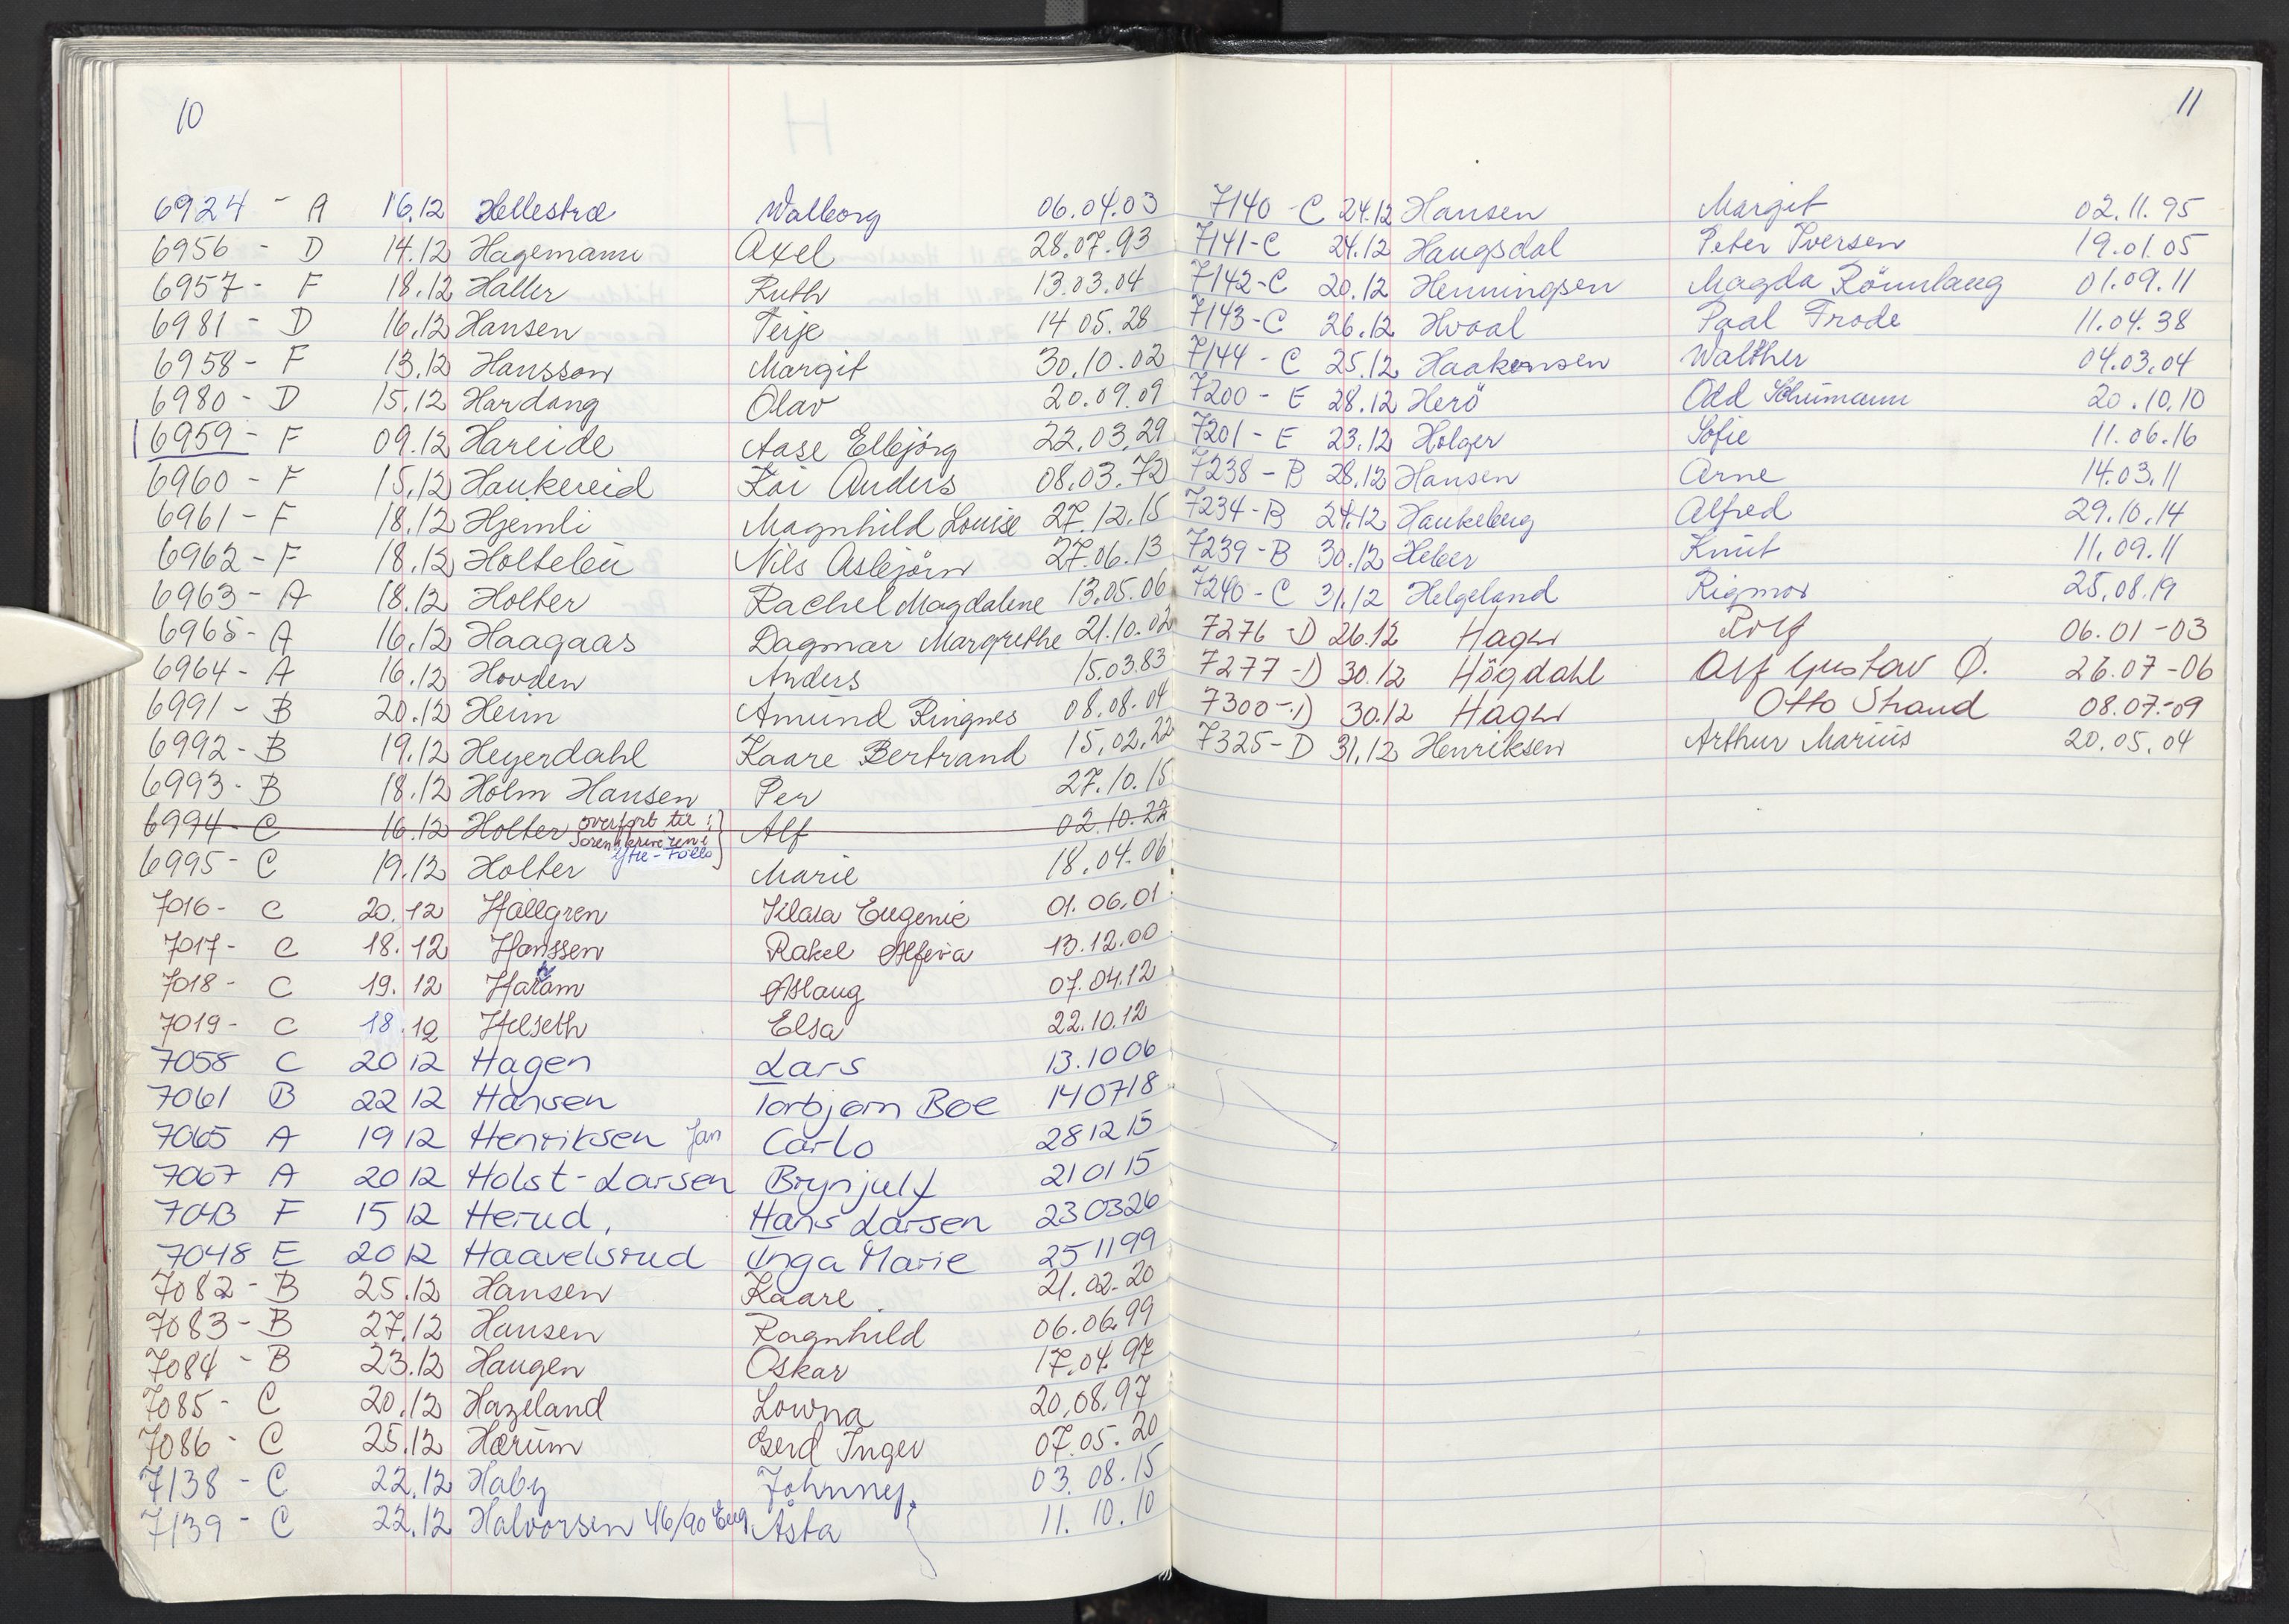 10
6924 - A 16.12 Hellestræ Walborg 06.04.03
6956 - D 14.12 Hagemann Axel 28.07.93
6957 - F 18.12 Haller Ruth 13.03.04
6981 - D 16.12 Hansen Terje 14 05.28
6958 - F 13.12 Hansson Margit 30.10.02
6980 - D 15.12 Hardang Olav 20.09.09
6959 - F 09.12 Hareide Aase Ellbjörg 22.03.29
6960 - F 15.12 Haukereid Kai Anders 08.03.72
6961 - F 18.12 Hjemli Magnhild Louise 27.12.15
6962 - F 18.12 Holteleu Nils Asbjörn 27.06.13
6963 - A 18.12 Holter Rachel Magdalene 13.05.06
6965 - A 16.12 Haagaas Dagmar Margrethe 21.10.02
6964 - A 16.12 Hovden Anders 15.03.83
6991 - B 20.12 Heim Amund Ringnes 08.08.04
6992 - B 19.12 Heyerdahl Kaare Bertrand 15.02.22
6993 - B 18.12 Holm Hansen Per 27.10.15
6994 - C 16.12 Holter overført til: Alf 02.10.22
Sorenskriveren i
Ytre-Follo
6995 - C 19.12 Holter Marie 18.04.06
7016 - C 20.12 Hällgren Klara Eugenie 01.06.01
7017 - C 18.12 Hanssen Rakel Alfeva 13.12.00
7018 - C 19.12 Haram Aslaug 07.04.12
7019 - C 18.12 Helseth Elsa 22.10.12
7058 C 20 12 Hagen Lars 13.1006
7061 B 22 12 Hansen Torbjørn Boe 140718
7065 A 19 12 Henriksen Jan Carlo 281215
7067 A 20 12 Holst-Larsen Brynjulf 210115
7043 F 15 12 Herud, Hans Larsen 230326
7048 E 20 12 Haavelsrud Inga Marie 251199
7082 - B 25.12 Hansen Kaare 21.02.20
7083 - B 27.12 Hansen Ragnhild 06.06.99
7084 - B 23.12 Haugen Oskar 17.04.97
7085 - C 20.12 Hazeland Lowna 20.08.97
7086 - C 25.12 Hærum Gerd Inger 07.05.20
7138 - C 22.12 Haby Johnny. 03.08.15
7139 - C 22.12 Halvorsen 46/90 Eng Åsta 11.10.10
11
7140 - C 24.12 Hansen Margit 02.11.95
7141 - C 24.12 Haugsdal Peter Iversen 19.01.05
7142 - C 20.12 Henningsen Magda Rönnlaug 01.09.11
7143 - C 26.12 Hvaal Paal Frode 11.04.38
7144 - C 25.12 Haakensen Walther 04.03.04
7200 - E 28.12 Herö Odd Schumann 20.10.10
7201 - E 23.12 Holger Sofie 11.06.16
7238 - B 28.12 Hansen Arne 14.03.11
7234 - B 24.12 Haukeberg Alfred 29.10.14
7239 - B 30.12 Heber Knut 11.09.11
7240 - C 31.12 Helgeland Rigmor 25.08.19
7276 - D 26.12 Hagen Rolf 06.01-03
7277 - D 30.12 Högdahl Alf Gustav Ø. 26.07-06
7300 - D 30.12 Hagen Otto Strand 08.07-09
7325 - D 31.12 Henriksen Arthur Marius 20.05.04